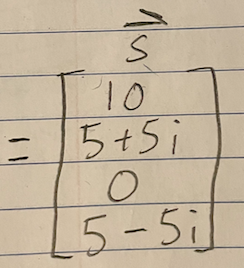 →
S
10
= 5+5i
0
5-5i